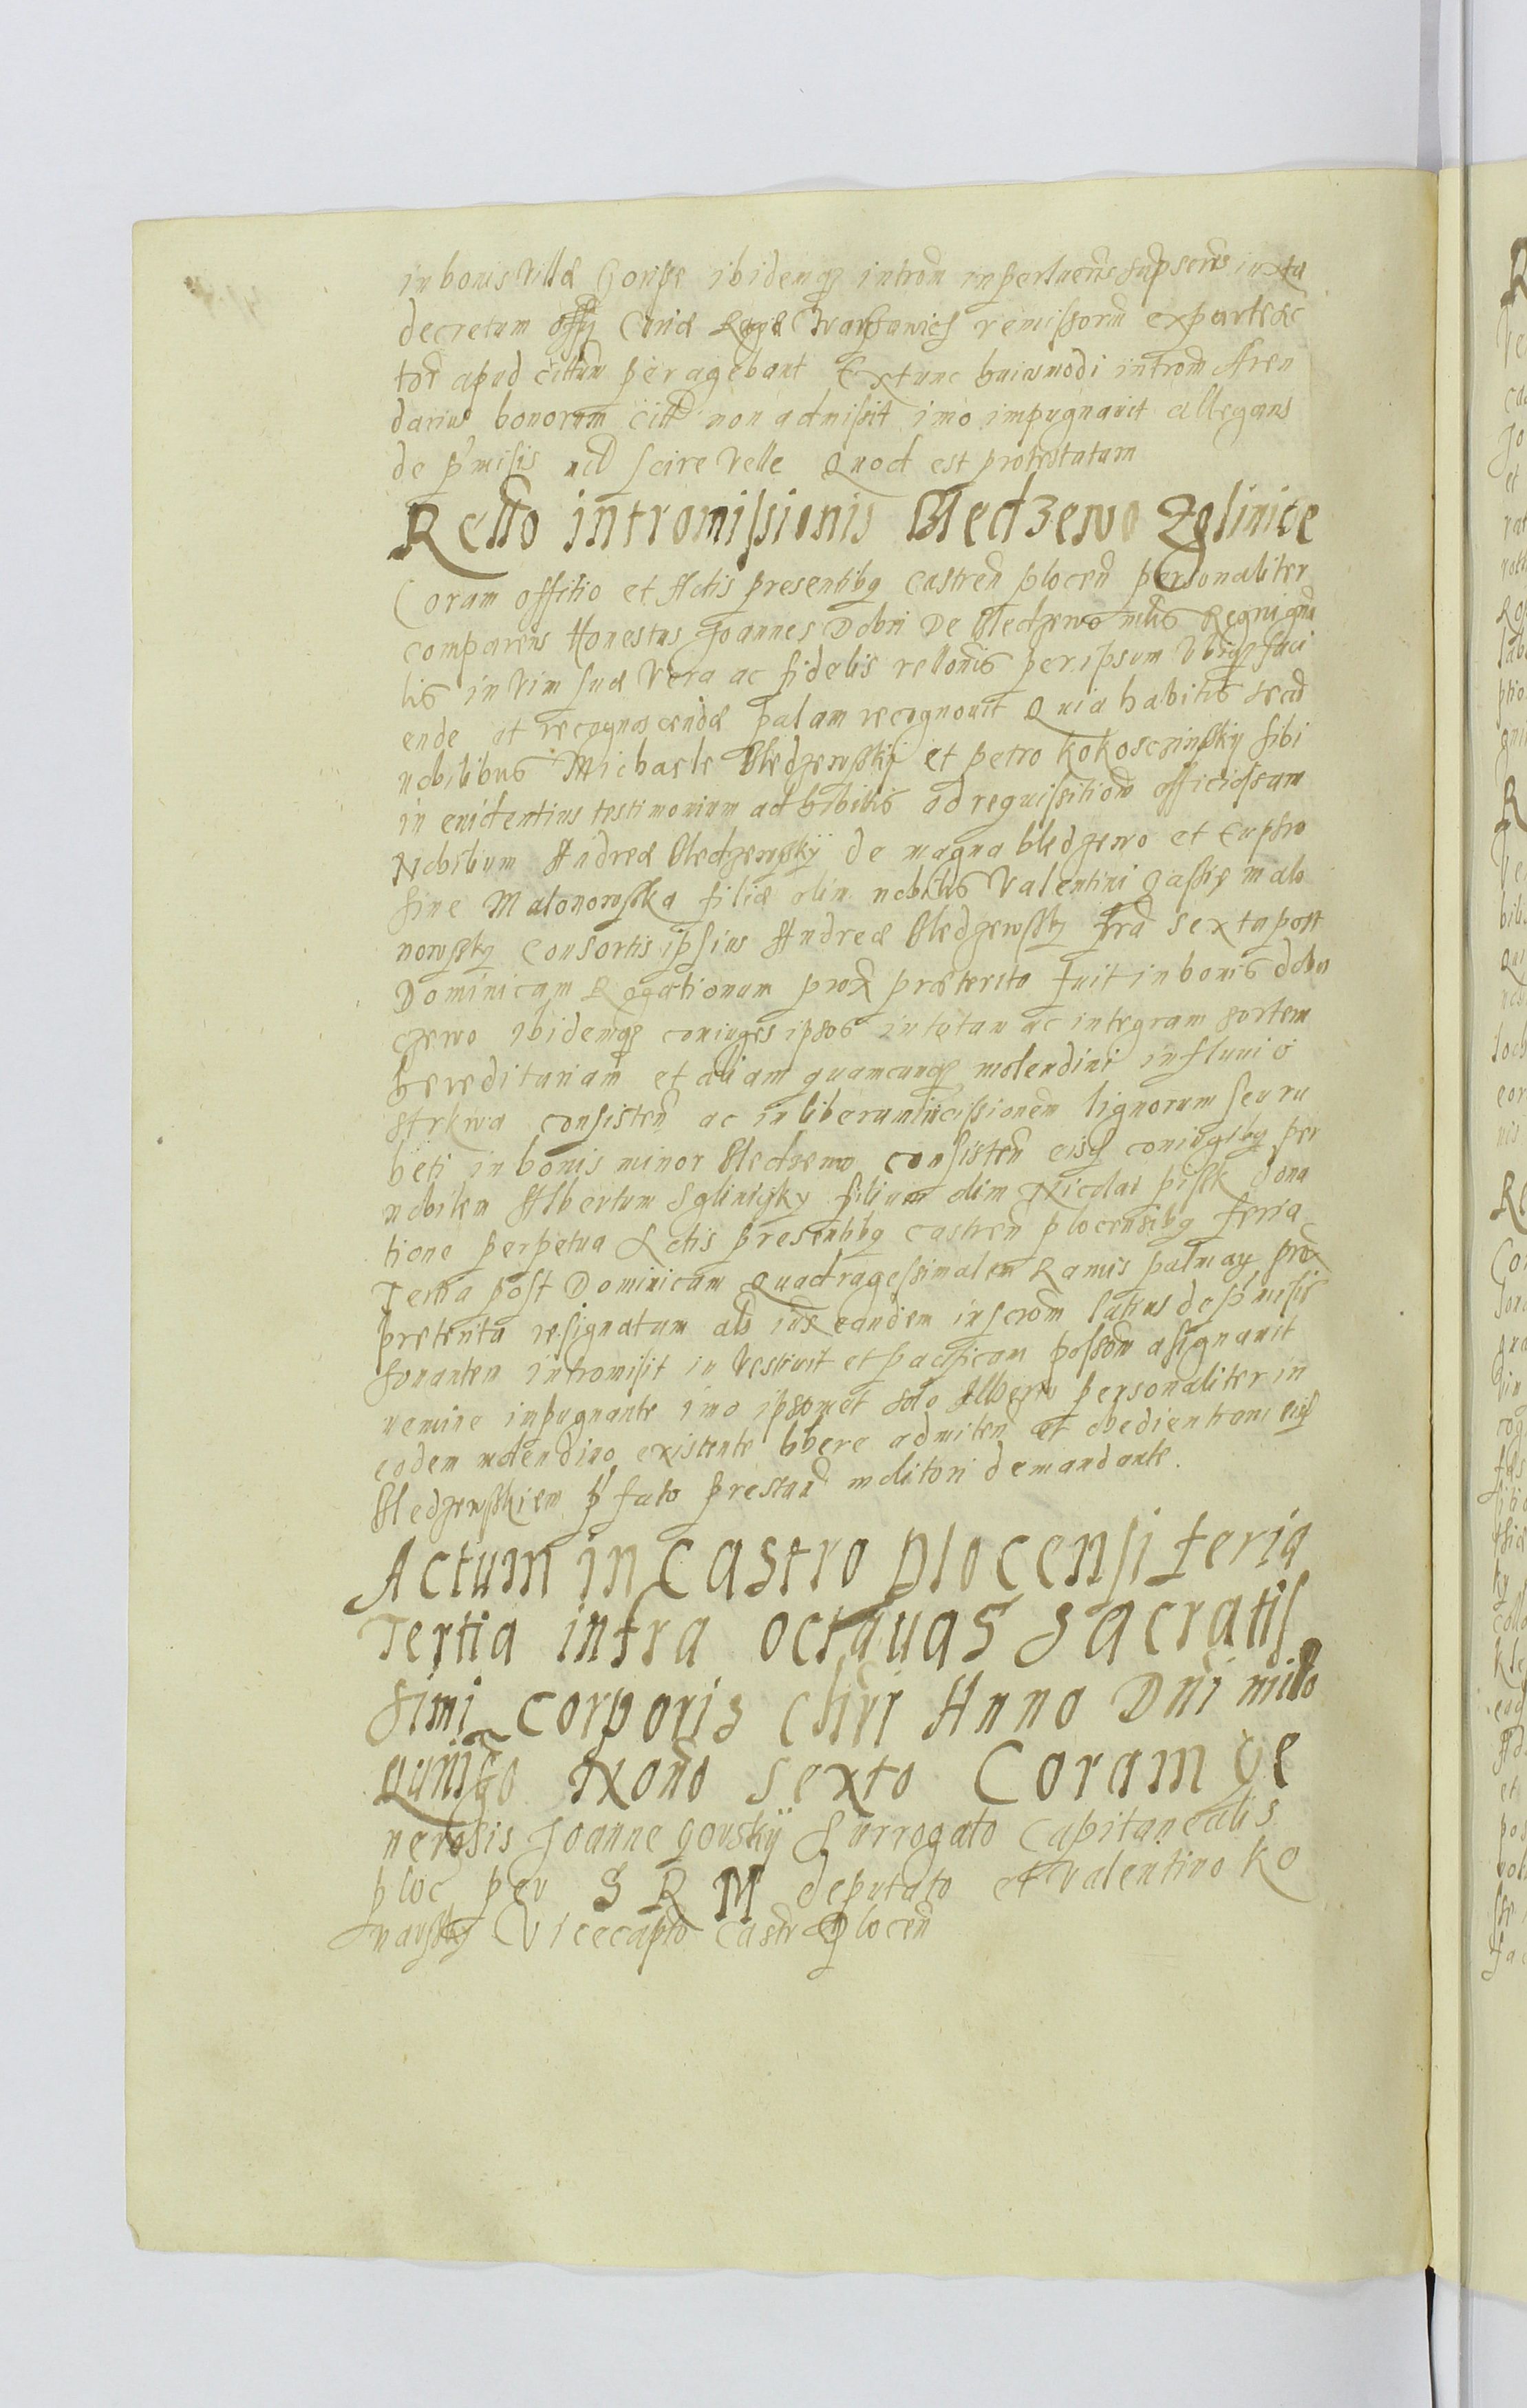 in bonis Villæ Gorzse ibidemq intrōm
decretum offy Curiæ Regiæ remissorum ex parte
apud peragebant Extunc huiusmodi introm Aren
darius bonorum non admisit imo impugnauit allegans
de p'misis nil scire Velle Quod est protestatum
Rello intromissionis Bledzewo Zglinice
Coram offitio et Actis presentibq Castren plocen personaliter
comparens Honestus Joannes Dobri De Bledzewo mlis Regni gnā
lis in Vim suæ Vera ac fidelis rellonis per ipsum Ubiq faci
ende at recognoscendæ palam recognouit Quia habitis secū
nobilibus Michaele Bledzewsky et petro Kokosczinsky sibi
in euidentius testimonium adhibitis ad requissitiom officiosam
Nobilium Andreæ Bledzewskÿ de magna bledzewo et Euphro
sine Malonowska filiæ olim nobilis Valentini malo
nowsky Consortis ipsius Andreæ Bledzewsky frā sexta post
Dominicam Rogationum prox præterita fuit in bonis
ibidemq coniuges ipsos in totam ac integram sortem
hereditariam et aliam quamcunq molendini in fluuio
Strkwa consisten ac in liberam incissionem lignorum seu ru
beti in bonis minor Bledzewo consisten eisq coniugibq per
nobilem Albertum Sglinicky filium olim Nicolai dona
tione perpetua Actis presentibq castren plocensibq feria
Tertia post Dominicam Quadragessimalem Ramis palmaz prox
preterita resignatum als eandem inscrom latius de p'misis
sonantem intromisit in Vestiuit et pacificam possom asignauit
nemine impugnante imo ipsomet solo Alberto personaliter in
eodem molendino existente libere admiten et obedientiam eisq
Bledzewskiem p'fato prestan molitori demandante.
Actum in Castro plocensi feria
Tertia infra octauas Sacratis
simi corporis Chri Anno Dni millo
Quingo sexto Coram ge
nerosis Joanne gouskÿ Surrogato Capitanealis
ploc per S R M deputato et Valentino Ko
Vicecapto castr plocen